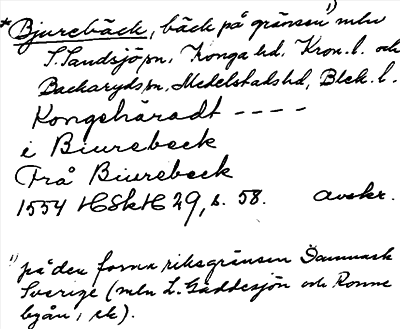 * Bjurebäck, bäck på gränsen 1) mln
S. Sandsjö sn, Konga hd, Kron. l. och
Backaryds sn, Medelstads hd, Blek. l.
Kongshäradt - - - -
i Biurebeck
Frå Biurebeck
1554 HSkH 29, s. 58. avskr.
1) på den forna riksgränsen Danmark
Sverige (mln L. Gäddesjön och Ronne
byån, ek).